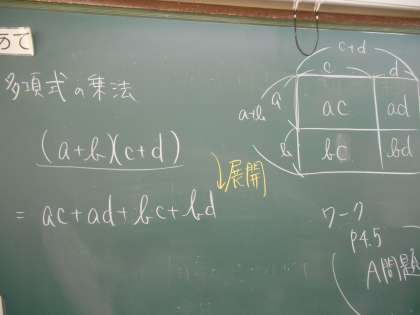 めあて
多項式の乗法
(a+b)(c+d)
展開
= ac+ad+bc+bd
c+d
c d
a+b a ac ad
b bc bd
ワーク
P4.5
A問題